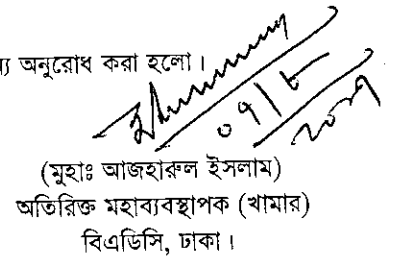 অনুরোধ করা হলো।
০৭/৮
(মুহাঃ আজহারুল ইসলাম)
অতিরিক্ত মহাব্যবস্থাপক (খামার)
বিএডিসি, ঢাকা।